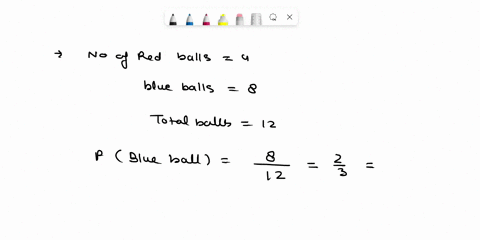 → No of Red balls = 4
blue balls = 8
Total balls = 12
P ( Blue ball ) = 8/12 = 2/3 =